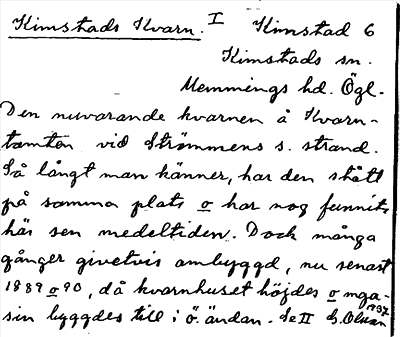 Kimstads Kvarn. I Kimstad 6
Kimstads sn.
Memmings hd. Ögl.
Den nuvarande kvarnen å Kvarn-
tomten vid Strömmens s. strand.
Så långt man känner, har den stått
på samma plats o har nog funnits
här sen medeltiden. Dock många
gånger givetvis ombyggd, nu senast
1889 o 90, då kvarnhuset höjdes o maga-
sin byggdes till i ö. ändan. Se II G. Olsson
1937